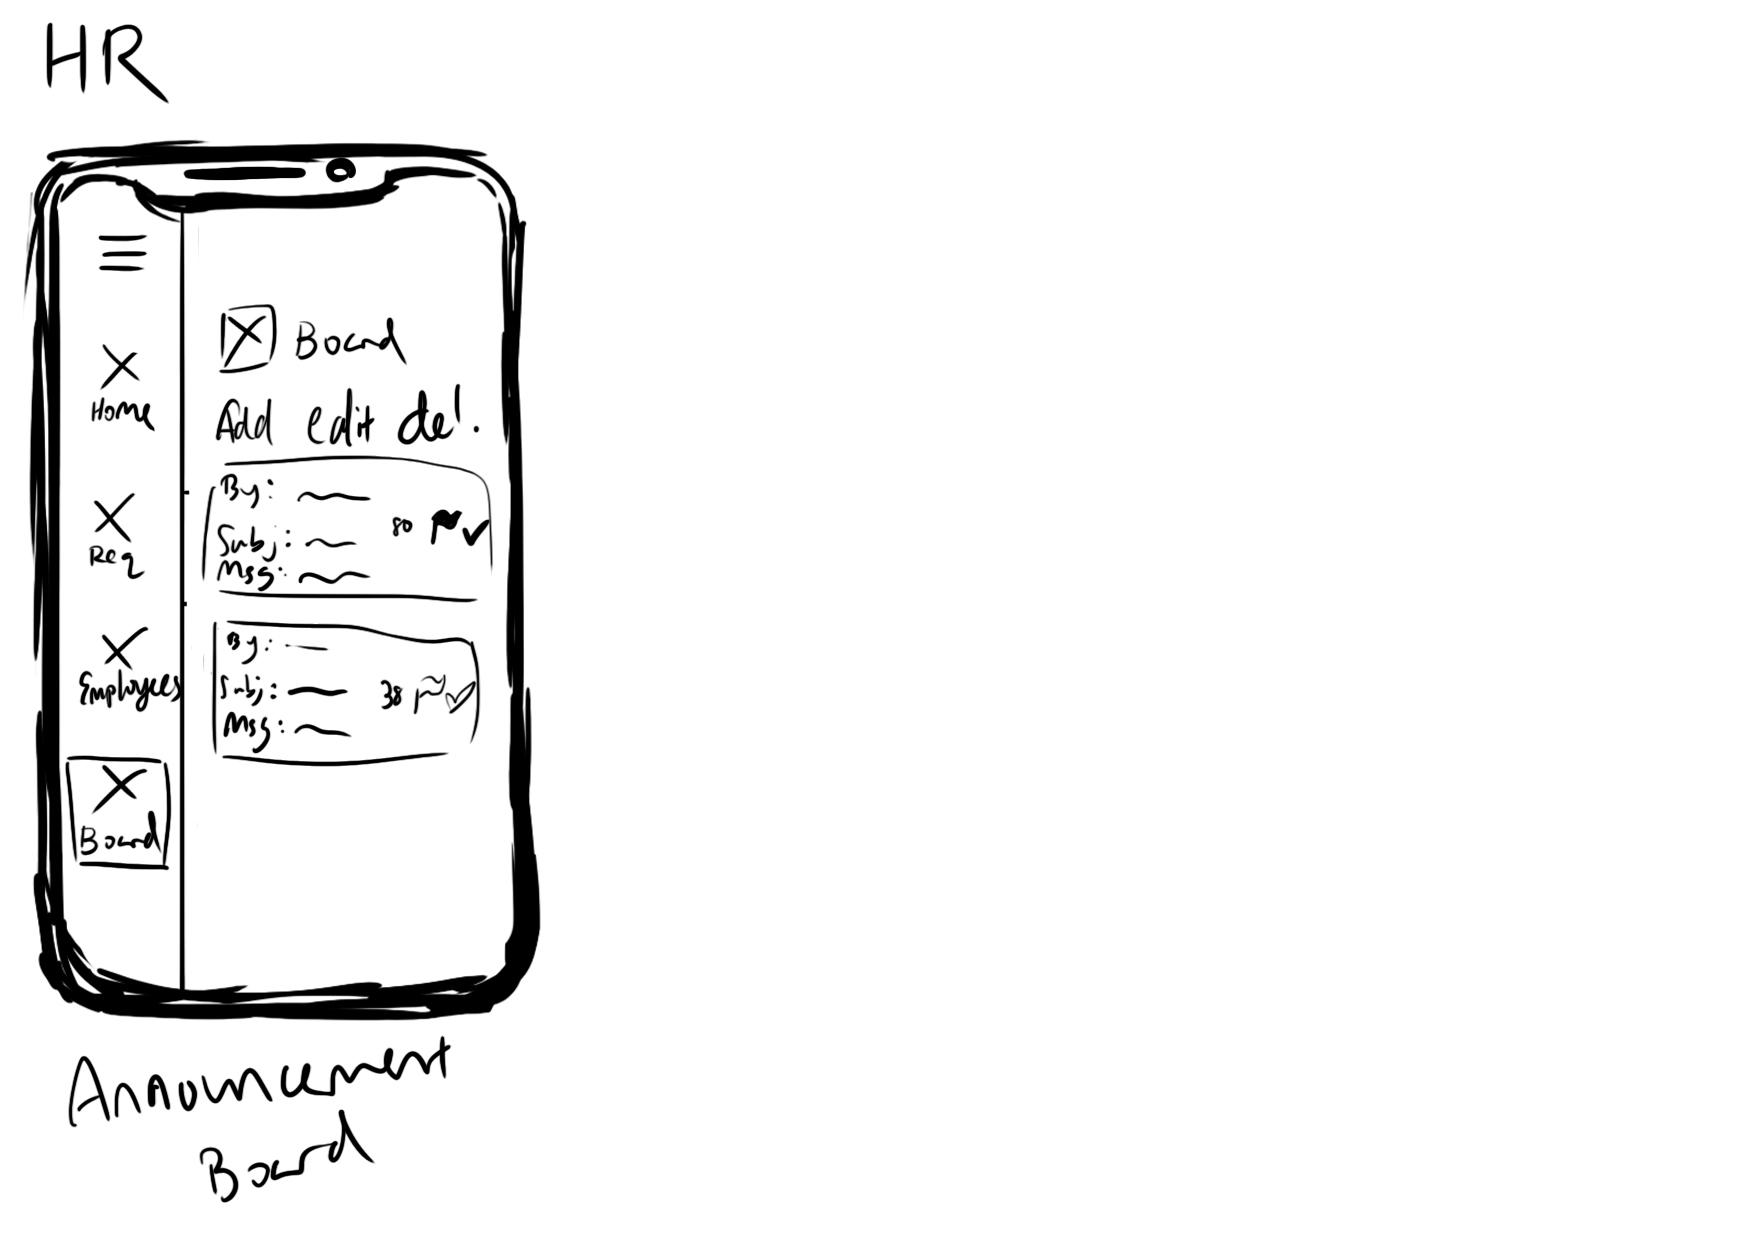 HR
Home
Req
Employees
Board
Board
Add edit del.
By:
80
Subj:
Msg:
By:
Subj: 38
Msg:
Announcement
Board